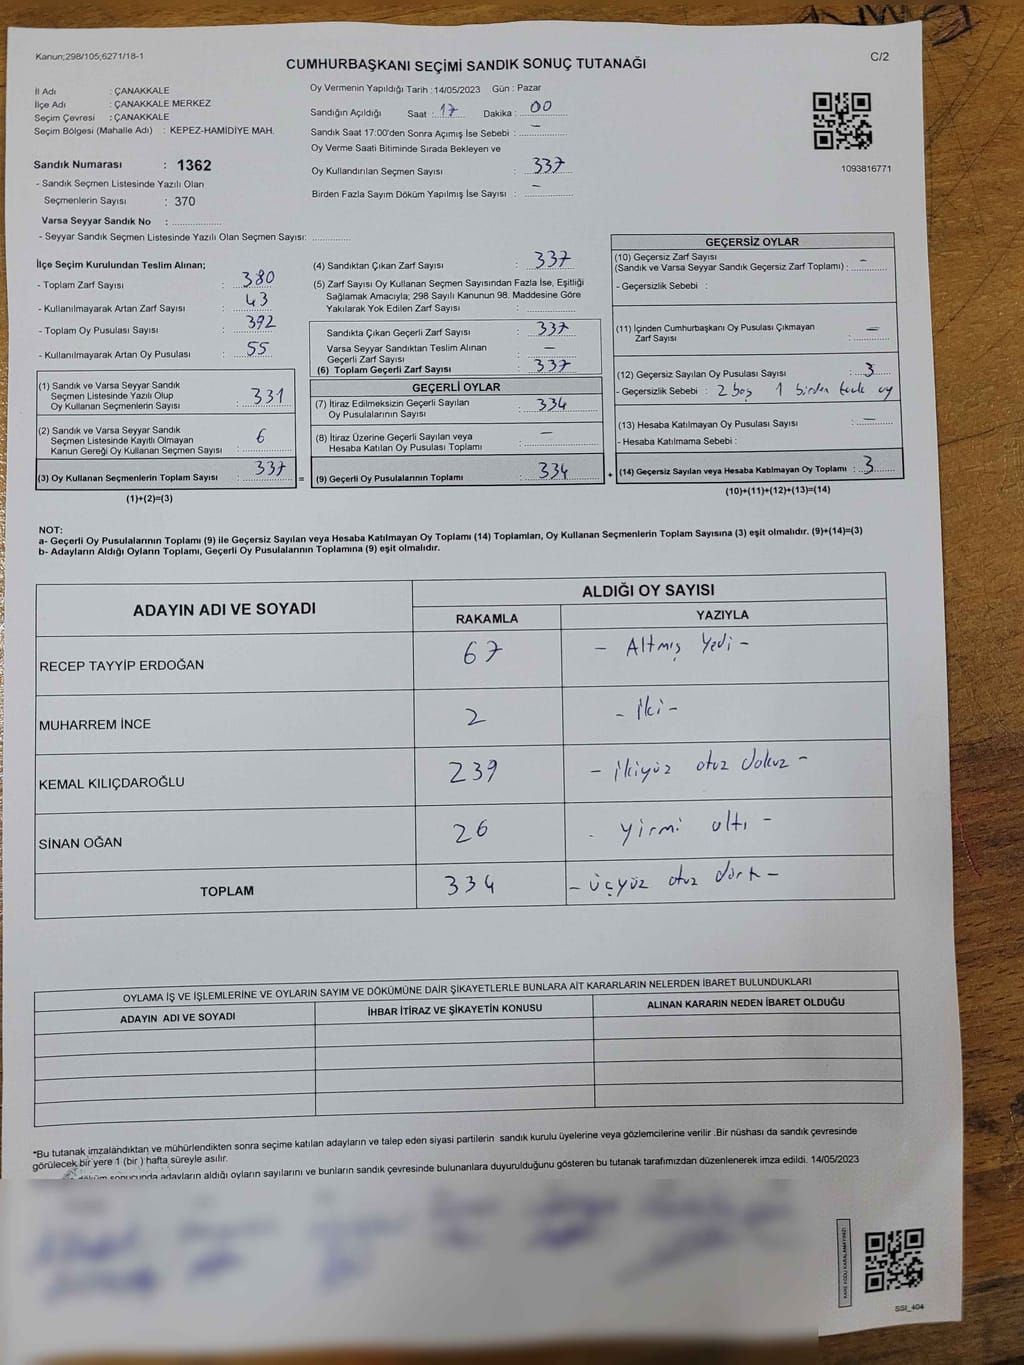 Kanun;298/105;6271/18-1
CUMHURBAŞKANI SEÇİMİ SANDIK SONUÇ TUTANAĞI
C/2
İl Adı : ÇANAKKALE
İlçe Adı : ÇANAKKALE MERKEZ
Seçim Çevresi : ÇANAKKALE
Seçim Bölgesi (Mahalle Adı) : KEPEZ-HAMİDİYE MAH.
Oy Vermenin Yapıldığı Tarih : 14/05/2023 Gün : Pazar
Sandığın Açıldığı Saat : 17 Dakika : 00
Sandık Saat 17:00'den Sonra Açımış İse Sebebi : –
Oy Verme Saati Bitiminde Sırada Bekleyen ve
Oy Kullandırılan Seçmen Sayısı : 337
Birden Fazla Sayım Döküm Yapılmış İse Sayısı : –
1093816771
Sandık Numarası : 1362
- Sandık Seçmen Listesinde Yazılı Olan
Seçmenlerin Sayısı : 370
Varsa Seyyar Sandık No :
- Seyyar Sandık Seçmen Listesinde Yazılı Olan Seçmen Sayısı:
İlçe Seçim Kurulundan Teslim Alınan;
- Toplam Zarf Sayısı : 380
- Kullanılmayarak Artan Zarf Sayısı : 43
- Toplam Oy Pusulası Sayısı : 392
- Kullanılmayarak Artan Oy Pusulası : 55
(1) Sandık ve Varsa Seyyar Sandık
Seçmen Listesinde Yazılı Olup
Oy Kullanan Seçmenlerin Sayısı : 331
(2) Sandık ve Varsa Seyyar Sandık
Seçmen Listesinde Kayıtlı Olmayan
Kanun Gereği Oy Kullanan Seçmen Sayısı : 6
(3) Oy Kullanan Seçmenlerin Toplam Sayısı : 337
(1)+(2)=(3)
=
(4) Sandıktan Çıkan Zarf Sayısı : 337
(5) Zarf Sayısı Oy Kullanan Seçmen Sayısından Fazla İse, Eşitliği
Sağlamak Amacıyla; 298 Sayılı Kanunun 98. Maddesine Göre
Yakılarak Yok Edilen Zarf Sayısı :
Sandıkta Çıkan Geçerli Zarf Sayısı : 337
Varsa Seyyar Sandıktan Teslim Alınan
Geçerli Zarf Sayısı : –
(6) Toplam Geçerli Zarf Sayısı : 337
GEÇERLİ OYLAR
(7) İtiraz Edilmeksizin Geçerli Sayılan
Oy Pusulalarının Sayısı : 334
(8) İtiraz Üzerine Geçerli Sayılan veya
Hesaba Katılan Oy Pusulası Toplamı : –
(9) Geçerli Oy Pusulalarının Toplamı : 334
+
GEÇERSİZ OYLAR
(10) Geçersiz Zarf Sayısı
(Sandık ve Varsa Seyyar Sandık Geçersiz Zarf Toplamı) : –
- Geçersizlik Sebebi :
(11) İçinden Cumhurbaşkanı Oy Pusulası Çıkmayan
Zarf Sayısı : –
(12) Geçersiz Sayılan Oy Pusulası Sayısı : 3
- Geçersizlik Sebebi : 2 boş 1 birden fazla oy
(13) Hesaba Katılmayan Oy Pusulası Sayısı : –
- Hesaba Katılmama Sebebi :
(14) Geçersiz Sayılan veya Hesaba Katılmayan Oy Toplamı : 3
(10)+(11)+(12)+(13)=(14)
NOT:
a- Geçerli Oy Pusulalarının Toplamı (9) ile Geçersiz Sayılan veya Hesaba Katılmayan Oy Toplamı (14) Toplamları, Oy Kullanan Seçmenlerin Toplam Sayısına (3) eşit olmalıdır. (9)+(14)=(3)
b- Adayların Aldığı Oyların Toplamı, Geçerli Oy Pusulalarının Toplamına (9) eşit olmalıdır.
ADAYIN ADI VE SOYADI ALDIĞI OY SAYISI
RAKAMLA YAZIYLA
RECEP TAYYİP ERDOĞAN 67 – Altmış Yedi –
MUHARREM İNCE 2 – İki –
KEMAL KILIÇDAROĞLU 239 – İkiyüz otuz dokuz –
SİNAN OĞAN 26 – yirmi altı –
TOPLAM 334 – üçyüz otuz dört –
OYLAMA İŞ VE İŞLEMLERİNE VE OYLARIN SAYIM VE DÖKÜMÜNE DAİR ŞİKAYETLERLE BUNLARA AİT KARARLARIN NELERDEN İBARET BULUNDUKLARI
ADAYIN ADI VE SOYADI İHBAR İTİRAZ VE ŞİKAYETİN KONUSU ALINAN KARARIN NEDEN İBARET OLDUĞU
*Bu tutanak imzalandıktan ve mühürlendikten sonra seçime katılan adayların ve talep eden siyasi partilerin sandık kurulu üyelerine veya gözlemcilerine verilir .Bir nüshası da sandık çevresinde
görülecek bir yere 1 (bir ) hafta süreyle asılır.
döküm sonucunda adayların aldığı oyların sayılarını ve bunların sandık çevresinde bulunanlara duyurulduğunu gösteren bu tutanak tarafımızdan düzenlenerek imza edildi. 14/05/2023
KARE KODU KARALAMAYINIZ!
SSI_404